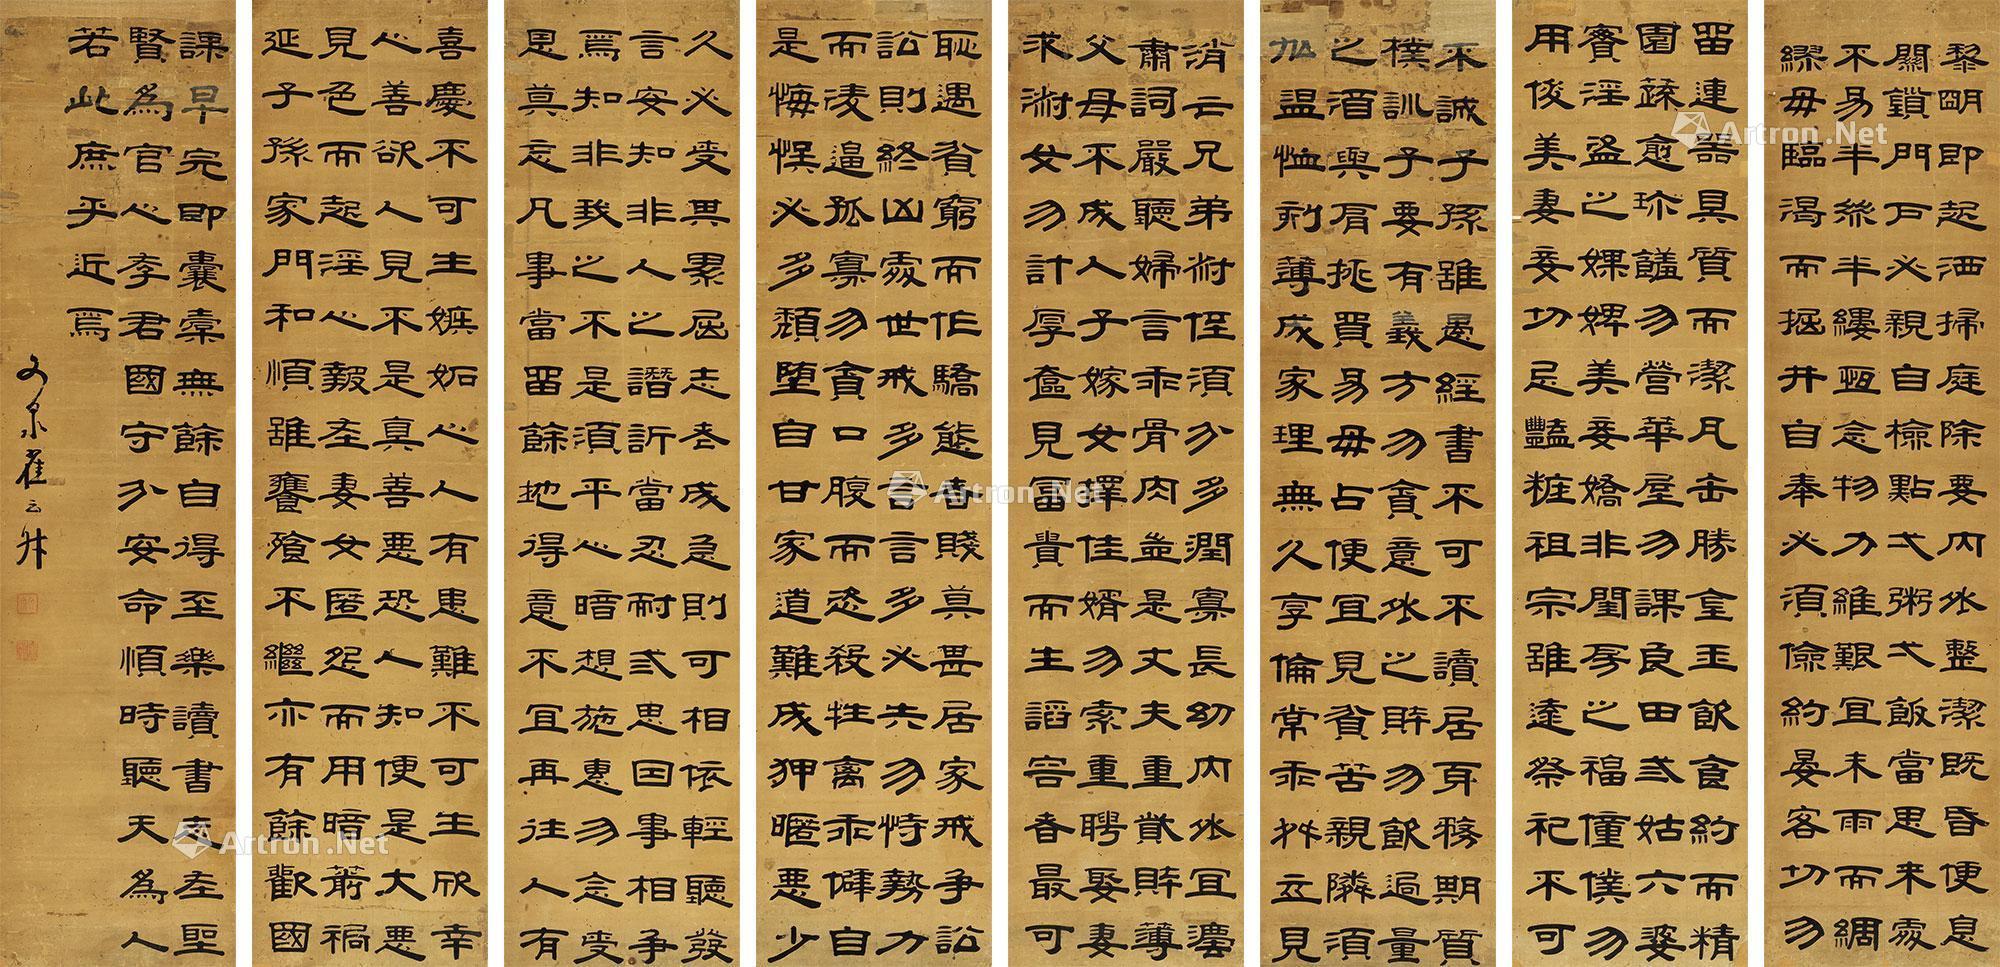 黎明即起洒掃庭除要內外整潔既昏便息
關鎖門戶必親自檢點弌粥弌飯當思來處
不易半絲半縷恆念物力維艱宜未雨而綢
繆毋臨渴而掘井自奉必須儉約宴客切勿
留連器具質而潔瓦缶勝金玉飲食約而精
園蔬愈珍饈勿營華屋勿課良田弎姑六婆
實淫盜之媒婢美妾嬌非閨房之福僮僕勿
用俊美妻妾切忌豔粧祖宗雖遠祭祀不可
不誠子孫雖愚經書不可不讀居身務期質
樸訓子要有義方勿貪意外之財勿飲過量
之酒與肩挑買易毋占便宜見貧苦親鄰須
加溫恤刻薄成家理無久享倫常乖舛立見
消亡兄弟叔侄須分多潤寡長幼內外宜灋
肅詞嚴聽婦言乖骨肉豈是丈夫重貲財薄
父母不成人子嫁女擇佳婿勿索重聘娶妻
求淑女勿計厚奩見富貴而生諂容者最可
恥遇貧窮而作驕態者賤莫甚居家戒爭訟
訟則終凶處世戒多言言多必失勿恃勢力
而凌逼孤寡勿貪口腹而恣殺牲禽乖僻自
是悔悮必多頹墮自甘家道難成狎暱惡少
久必受其累屈志老成急則可相依輕聽發
言安知非人之譖訴當忍耐弎思因事相爭
焉知非我之不是須平心暗想施惠勿念受
恩莫忘凡事當留餘地得意不宜再往人有
喜慶不可生嫉妒心人有患難不可生欣幸
心善欲人見不是真善惡恐人知便是大惡
見色而起淫心報在妻女匿怨而用暗箭禍
延子孫家門和順雖饔飧不繼亦有餘歡國
課早完即囊橐無餘自得至樂讀書志在聖
賢為官心存君國守分安命順時聽天為人
若此庶乎近焉
文泉翟云升
Artron.Net
Artron.Net
Artron.Net